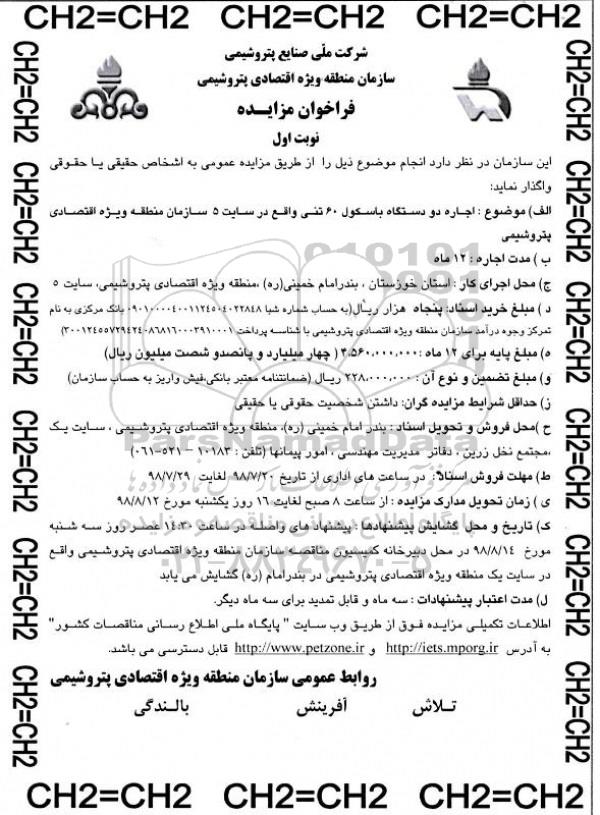 CH2=CH2 CH2=CH2 CH2=CH2
شرکت ملّی صنایع پتروشیمی
سازمان منطقه ویژه اقتصادی پتروشیمی
فراخوان مزایـده
نوبت اول
این سازمان در نظر دارد انجام موضوع ذیل را از طریق مزایده عمومی به اشخاص حقیقی یـا حقـوقی
واگذار نماید:
الف) موضوع : اجـاره دو دستگاه باسکول ۶۰ تنـی واقـع در سایت ۵ سـازمان منطقـه ویـژه اقتصـادی
پتروشیمی
ب ) مدت اجاره : ۱۲ ماه
ج) محل اجرای کار : استان خوزستان ، بندرامام خمینی(ره) ،منطقه ویژه اقتصادی پتروشیمی، سایت ۵
د ) مبلغ خرید اسناد: پنجاه هزار ریـال(به حساب شماره شبا ۰۹۰۱۰۰۰۰۴۰۰۱۱۲۴۵۰۴۰۲۲۸۴۸ بانک مرکزی به نام
تمرکز وجوه درآمد سازمان منطقه ویژه اقتصادی پتروشیمی با شناسه پرداخت
ه) مبلغ پایه برای ۱۲ ماه :۴،۵۶۰،۰۰۰،۰۰۰ ( چهار میلیارد و پانصدو شصت میلیون ریال)
و) مبلغ تضمین و نوع آن : ۲۲۸،۰۰۰،۰۰۰ ریـال (ضمانتنامه معتبر بانکی،فیش واریز به حساب سازمان)
ز) حداقل شرایط مزایده گران: داشتن شخصیت حقوقی یا حقیقی
ح )محل فروش و تحویل اسناد : بندر امام خمینی (ره)، منطقه ویژه اقتصادی پتروشـیمی ، سـایت یـک
،مجتمع نخل زرین ، دفاتر مدیریت مهندسی ، امور پیمانها (تلفن : ۱۰۱۸۳ - ۵۲۱-۰۶۱)
ط) مهلت فروش اسناد: در ساعت های اداری از تاریخ ۹۸/۷/۲۰ لغایت ۹۸/۷/۲۹
ی ) زمان تحویل مدارک مزایده : از ساعت ۸ صبح لغایت ۱۶ روز یکشنبه مورخ ۹۸/۸/۱۲
ک) تاریخ و محل گشایش پیشنهادها : پیشنهاد های واصله در ساعت ۱۴:۳۰ عصـر روز سـه شـنبه
مورخ ۹۸/۸/۱۴ در محل دبیرخانه کمیسیون مناقصـه سـازمان منطقه ویژه اقتصادی پتروشـیمی واقـع
در سایت یک منطقه ویژه اقتصادی پتروشیمی در بندرامام (ره) گشایش می یابد
ل) مدت اعتبار پیشنهادات : سه ماه و قابل تمدید برای سه ماه دیگر.
اطلاعـات تکمیلـی مزایـده فـوق از طریـق وب سـایت " پایگاه ملـی اطـلاع رسانی مناقصات کشـور"
به آدرس http://iets.mporg.ir و http://www.petzone.ir قابل دسترسی می باشد.
روابط عمومی سازمان منطقه ویژه اقتصادی پتروشیمی
تـلاش آفرینش بالـندگی
CH2=CH2 CH2=CH2 CH2=CH2
CH2=CH2
CH2=CH2
CH2=CH2
CH2=CH2
CH2=CH2
CH2=CH2
CH2=CH2
CH2=CH2
CH2=CH2
CH2=CH2
ParsNamadData
۰۲۱-۸۸۳۴۹۶۷۰-۵